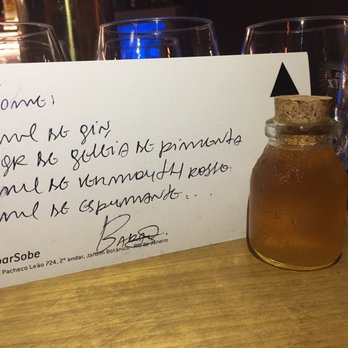 ome:
ml de gin
gr de geleia de pimenta
ml de vermouth rosso
ml de espumante...
barSobe
Pacheco Leão 724, 2º andar, Jardim Botânico - Rio de Janeiro